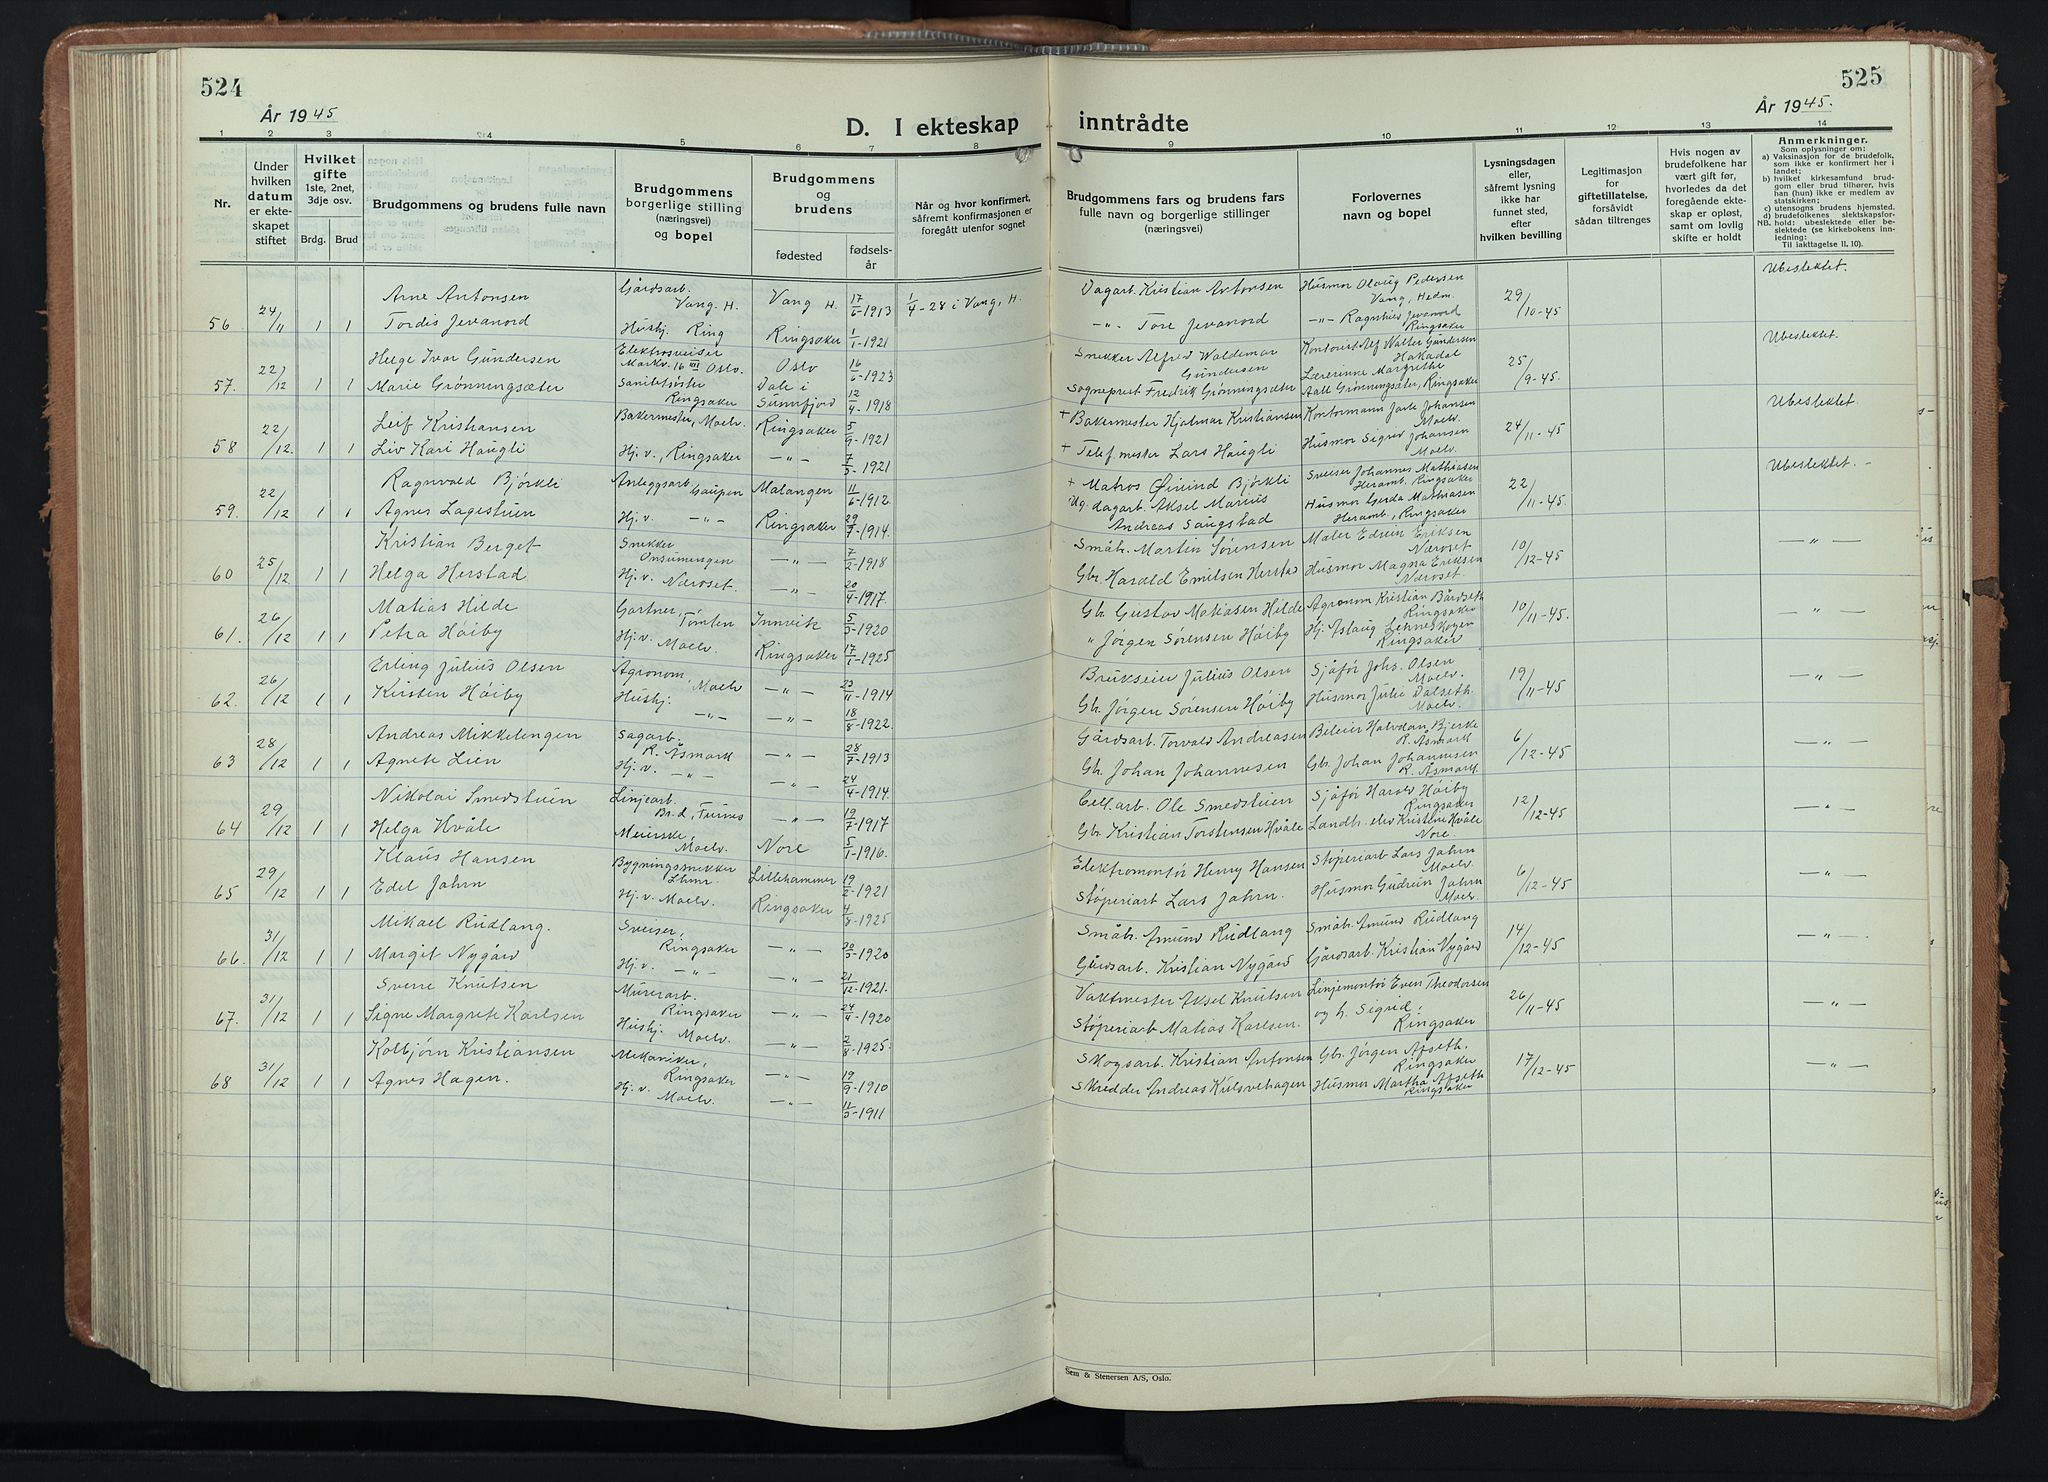 524
År 1945
D. I ekteskap
1 2 3 4 5 6 7 8
Nr.
Under hvilken datum er ekteskapet stiftet
Hvilket gifte
1ste, 2net, 3dje osv.
Brdg. Brud
Brudgommens og brudens fulle navn
Brudgommens borgerlige stilling (næringsvei) og bopel
Brudgommens og brudens
fødested
fødselsår
Når og hvor konfirmert, såfremt konfirmasjonen er foregått utenfor sognet
Arne Antonsen Gårdsarb. Vang. H. Vang H. 17/6-1913 1/4-28 i Vang, H.
56 24/11 1 1 Tordis Jevanord Hushj. Ring Ringsaker 1/1-1921
Helge Ivar Gundersen Elektrosveiser Markv. 16 III Oslo. Oslo 16/6-1923
57. 22/12 1 1 Marie Grønningsæter Sanitetsøster Ringsaker Dale i Sunnfjord 12/4-1918
Leif Kristiansen Bakermester, Moelv. Ringsaker 5/9-1921
58 22/12. 1 1 Liv Kari Haugli Hj. v., Ringsaker -"- 7/3-1921
Ragnvald Bjørkli Anleggsarb. Gaupen Malangen 11/6-1912
59. 22/12 1 1 Agnes Lagestuen Hj. v. -"- Ringsaker 29/7-1914.
Kristian Berget Snekker -"- 7/2-1918
60 25/12. 1 1 Helga Herstad Hj. v. Næroset. -"- 20/4-1917.
Matias Hilde Gartner, Tømten Innvik 5/3-1920
61. 26/12 1 1 Petra Høiby Hj. v. Moelv. Ringsaker 17/1-1925
Erling Julius Olsen Agronom, Moelv -"- 23/11-1914
62. 26/12 1 1 Kirsten Høiby Hushj. -"- -"- 18/8-1922.
Andreas Mikkelengen Sagarb. R. Åsmark -"- 28/7-1913
63 28/12 1 1 Agnete Lien Hj. v. -"- -"- 24/4-1914.
Nikolai Smedstuen Linjearb. Br.d, Furnes -"- 19/7-1917
64 29/12 1 1 Helga Hvåle Meierske, Moelv. Nore 5/1-1916.
Klaus Hansen Bygningssnekker Lhmr. Lillehammer 19/2-1921
65 29/12 1 1 Edel Jahrn Hj. v. Moelv. Ringsaker 4/8-1925
Mikael Rudlang. Sveiser, Ringsaker -"- 20/3-1920
66. 31/12 1 1 Margit Nygård Hj. v. -"- -"- 21/12-1921.
Sverre Knutsen Murerarb. Ringsaker -"- 24/4-1920
67. 31/12 1 1 Signe Margrete Karlsen Hushj. Moelv. -"- 2/8-1925.
Kolbjørn Kristiansen Mekaniker, Ringsaker -"- 19/9-1910
68 31/12 1 1 Agnes Hagen. Hj. v. Moelv. -"- 11/3-1911
525
År 1945.
inntrådte
9 10 11 12 13 14
Brudgommens fars og brudens fars fulle navn og borgerlige stillinger (næringsvei)
Forlovernes navn og bopel
Lysningsdagen eller, såfremt lysning ikke har funnet sted, efter hvilken bevilling
Legitimasjon for giftetillatelse, forsåvidt sådan tiltrenges
Hvis nogen av brudefolkene har vært gift før, hvorledes da det foregående ekteskap er opløst, samt om lovlig skifte er holdt
Anmerkninger.
Som oplysninger om:
a) Vaksinasjon for de brudefolk, som ikke er konfirmert her i landet;
b) hvilket kirkesamfund brudgom eller brud tilhører, hvis han (hun) ikke er medlem av statskirken;
c) utensogns brudens hjemsted.
d) brudefolkenes slektskapsforhold: ubeslektede eller beslektede (se kirkebokens innledning: Til iakttagelse II, 10).
NB.
Dagarb. Kristian Antonsen Husmor Olaug Pedersen Vang, Hedm. 29/10-45 Ubeslektet.
-"- Tore Jevanord -"- Ragnhild Jevanord Ringsaker
Snekker Alfred Waldemar Gundersen Kontorist Alf Walter Gundersen Hakadal 25/9-45. Ubeslektet.
Sogneprest Fredrik Grønningsæter Lærerinne Margrethe Aall Grønningsæter, Ringsaker
+ Bakermester Hjalmar Kristiansen Kontormann Jarle Johansen Moelv. 24/11-45 Ubeslektet.
+ Telef.mester Lars Haugli Husmor Sigrid Johansen Moelv.
+ Matros Øivind Bjørkli Sveiser Johannes Mathiasen Heramb. Ringsaker 22/11-45. Ubeslektet. -
Ug. dagarb. Aksel Marius Andreas Saugstad Husmor Gerda Mathiasen Heramb., Ringsaker
Småbr. Martin Sørensen Maler Edvin Eriksen Næroset 10/12-45 -"-
Gbr. Harald Emilsen Herstad Husmor Magna Eriksen Næroset.
Gbr. Gustav Matiasen Hilde Agronom Kristian Bårdseth Ringsaker 10/11-45. -"-
" Jørgen Sørensen Høiby Hj. Aslaug Lehneskogen Ringsaker
Brukseier Julius Olsen Sjåfør Johs. Olsen Moelv. 19/11-45 -"-
Gbr. Jørgen Sørensen Høiby Husmor Julie Dalseth. Moelv.
Gårdsarb. Torvald Andreasen Bileier Halvdan Bjerke R. Åsmark 6/12-45 -"-
Gbr. Johan Johannesen Gbr. Johan Johannesen R. Åsmark.
Cell.arb. Ole Smedstuen Sjåfør Harald Høiby Ringsaker 12/12-45 -"-
Gbr Kristian Torstensen Hvåle Landbr. elev Kristine Hvåle Nore.
Elektromontør Henry Hansen Støperiarb Lars Jahrn Moelv. 6/12-45 -"-
Støperiarb Lars Jahrn. Husmor Gudrun Jahrn Moelv.
Småbr. Amund Rudlang Småbr. Amund Rudlang 14/12-45 -"-
Gårdsarb. Kristian Nygård Gårdsarb. Kristian Nygård
Vaktmester Aksel Knutsen Linjemontør Even Theodorsen og h. Sigrid, Ringsaker 26/11-45 -"-
Støperiarb Matias Karlsen.
Skogsarb. Kristian Antonsen Gbr. Jørgen Afseth. Ringsaker 17/12-45 -"-
Skredder Andreas Kulsvehagen Husmor Martha Afseth Ringsaker
Sem & Stenersen A/S, Oslo.